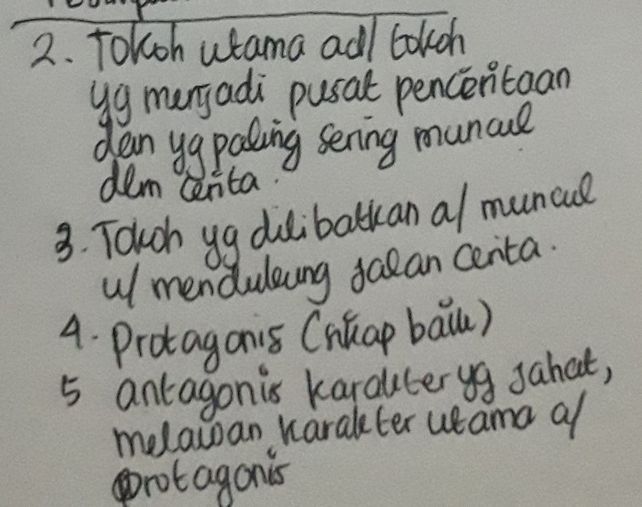 2. Tokoh utama adl tokoh
yg menjadi pusat penceritaan
dan yg paling sering muncul
dlm cerita.
3. Tokoh yg dilibatkan a/ muncul
u/ mendukung jalan cerita.
4. Protagonis (sikap baik)
5 antagonis karakter yg jahat,
melawan karakter utama a/
protagonis